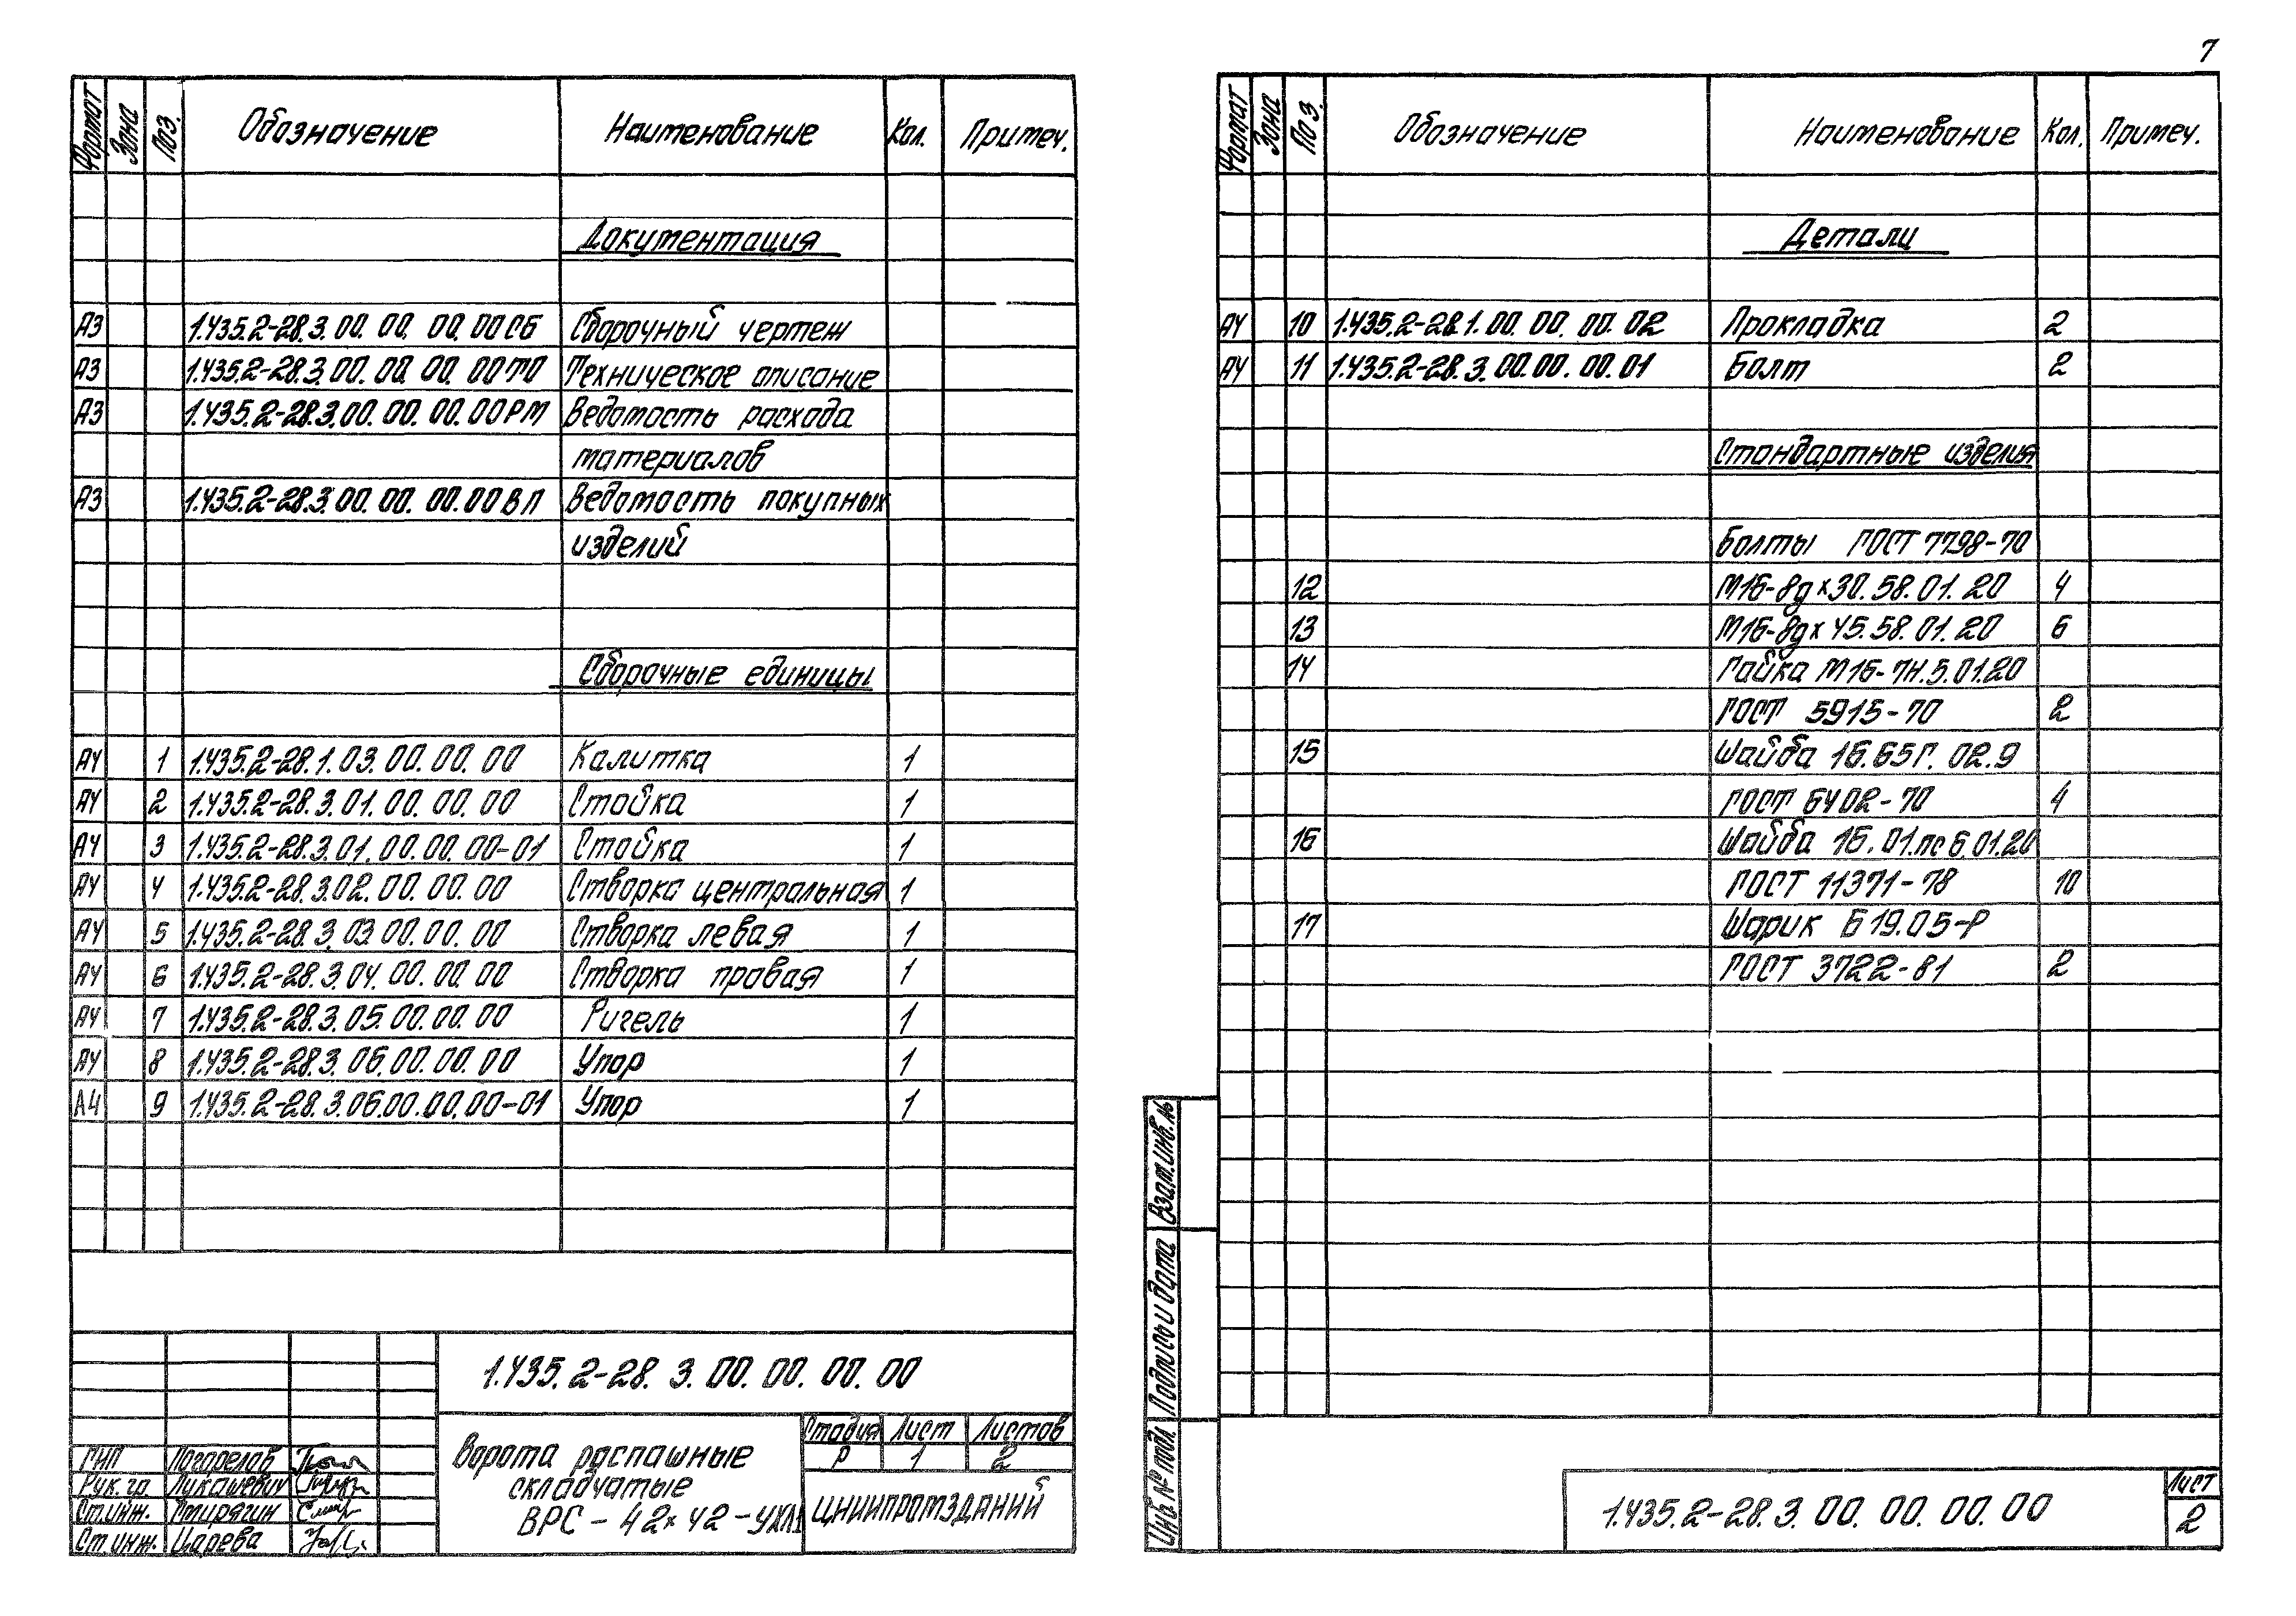 7
Формат Зона Поз. Обозначение Наименование Кол. Примеч.
Документация
А3 1.435.2-28.3.00.00.00.00СБ Сборочный чертеж
А3 1.435.2-28.3.00.00.00.00ТО Техническое описание
А3 1.435.2-28.3.00.00.00.00РМ Ведомость расхода
материалов
А3 1.435.2-28.3.00.00.00.00ВП Ведомость покупных
изделий
Сборочные единицы
А4 1 1.435.2-28.1.03.00.00.00 Калитка 1
А4 2 1.435.2-28.3.01.00.00.00 Стойка 1
А4 3 1.435.2-28.3.01.00.00.00-01 Стойка 1
А4 4 1.435.2-28.3.02.00.00.00 Створка центральная 1
А4 5 1.435.2-28.3.03.00.00.00 Створка левая 1
А4 6 1.435.2-28.3.04.00.00.00 Створка правая 1
А4 7 1.435.2-28.3.05.00.00.00 Ригель 1
А4 8 1.435.2-28.3.06.00.00.00 Упор 1
А4 9 1.435.2-28.3.06.00.00.00-01 Упор 1
1.435.2-28.3.00.00.00.00
ГИП Погорелов
Рук.гр. Лукашевич
Ст.инж. Смирягин
Ст.инж. Царева
Ворота распашные
складчатые
ВРС-42×42-УХЛ1
Стадия Лист Листов
Р 1 2
ЦНИИПРОМЗДАНИЙ
Формат Зона Поз. Обозначение Наименование Кол. Примеч.
Детали
А4 10 1.435.2-28.1.00.00.00.02 Прокладка 2
А4 11 1.435.2-28.3.00.00.00.01 Болт 2
Стандартные изделия
Болты ГОСТ 7798-70
12 М16-8g×30.58.01.20 4
13 М16-8g×45.58.01.20 6
14 Гайка М16-7Н.5.01.20
ГОСТ 5915-70 2
15 Шайба 16.65Г.02.9
ГОСТ 6402-70 4
16 Шайба 16.01.пс6.01.20
ГОСТ 11371-78 10
17 Шарик Б19.05-Р
ГОСТ 3722-81 2
Взам.инв.№
Подпись и дата
Инв.№ подл.
1.435.2-28.3.00.00.00.00
Лист
2